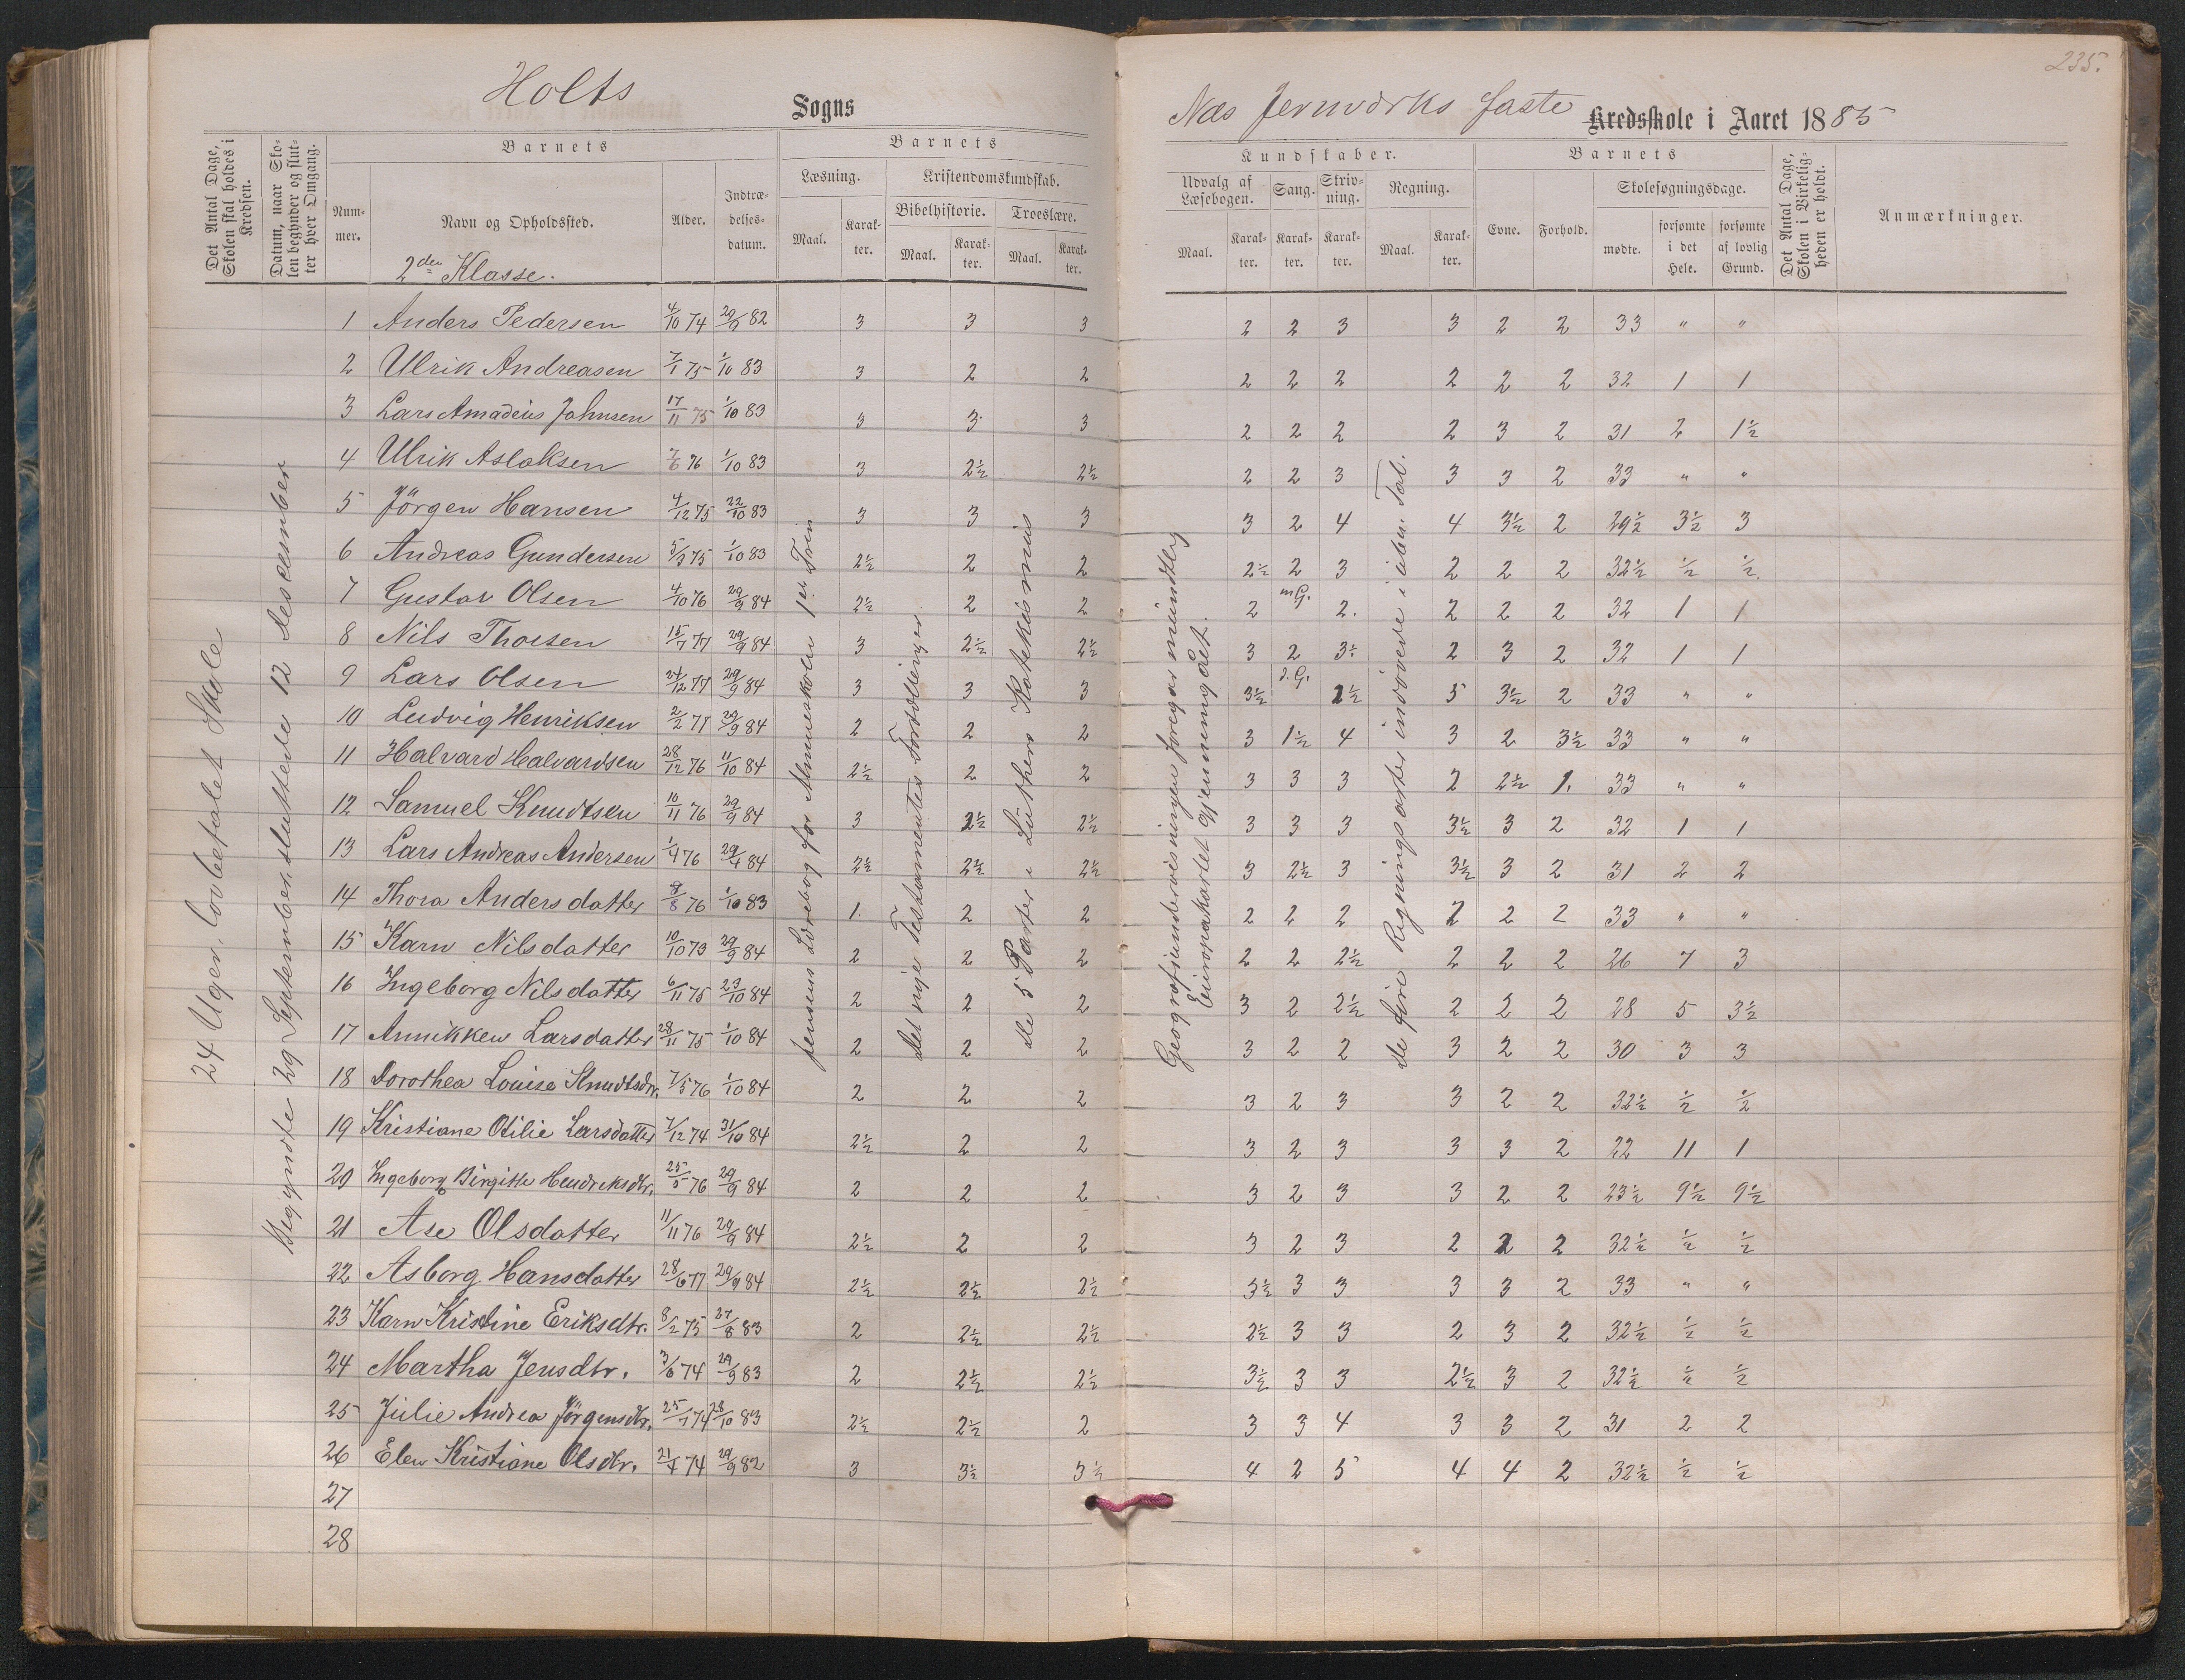 Holts Sogns
235.
Næs Jernværks faste Kredsskole i Aaret 1885
Det Antal Dage, Skolen skal holdes i Kredsen.
Datum, naar Skolen begynder og slutter hver Omgang.
Barnets
Nummer.
Navn og Opholdssted.
Alder.
Indtrædelsesdatum.
Barnets
Læsning.
Maal.
Karakter.
Kristendomskundskab.
Bibelhistorie.
Maal.
Karakter.
Troeslære.
Maal.
Karakter.
Kundskaber.
Udvalg af Læsebogen.
Maal.
Karakter.
Sang.
Karakter.
Skrivning.
Karakter.
Regning.
Maal.
Karakter.
Barnets
Evne.
Forhold.
Skolesøgningsdage.
mødte.
forsømte i det Hele.
forsømte af lovlig Grund.
Det Antal Dage, Skolen i Virkeligheden er holdt.
Anmærkninger.
2den Klasse.
24 Uger, lovbefalet Skole
Begyndte 29 September, sluttede 12 december
Jensens Læsebog for Almueskolen 1ste Trin
Det nye Testamentes Fortællinger
De 5 Parter i Luthers Katekismus
Geografiundervisningen foregår mundtlig
Europakartet gjennemgået.
De fire Regningsarter indøvede i uben. Tal.
1 Anders Pedersen 4/10 74 29/9 82 3 3 3 2 2 3 3 2 2 33 " "
2 Ulrik Andreasen 7/1 75 1/10 83 3 2 2 2 2 2 2 2 2 32 1 1
3 Lars Amadeus Johnsen 17/11 75 1/10 83 3 3 3 2 2 2 2 3 2 31 2 1½
4 Ulrik Aslaksen 7/6 76 1/10 83 3 2½ 2½ 2 2 3 3 3 2 33 " "
5 Jörgen Hansen 4/12 75 22/10 83 3 3 3 3 2 4 4 3½ 2 29½ 3½ 3
6 Andreas Gundersen 5/9 75 1/10 83 2½ 2 2 2½ 2 3 2 2 2 32½ ½ ½
7 Gustav Olsen 4/10 76 29/9 84 2½ 2 2 2 mG. 2. 2 2 2 32 1 1
8 Nils Thorsen 15/7 77 29/9 84 3 2½ 2½ 3 2 3 2 3 2 32 1 1
9 Lars Olsen 24/12 77 29/9 84 3 3 3 3½ 2½ 5 3½ 2 33 " "
10 Ludvig Henriksen 2/2 77 29/9 84 2 2 2 3 1½ 4 3 2 3½ 33 " "
11 Halvard Halvardsen 28/12 76 11/10 84 2½ 2 2 3 3 3 2 2½ 1. 33 " "
12 Samuel Knudtsen 10/11 76 29/9 84 3 2½ 2½ 3 3 3 3½ 3 2 32 1 1
13 Lars Andreas Andersen 1/4 76 29/4 84 2½ 2½ 2½ 3 2½ 3 3½ 3 2 31 2 2
14 Thora Andersdatter 8/8 76 1/10 83 1. 2 2 2 2 2 2 2 2 33 " "
15 Karn Nilsdatter 10/10 73 29/9 84 2 2 2 2 2 2½ 2 2 2 26 7 3
16 Ingeborg Nilsdatter 6/11 75 23/10 84 2 2 2 3 2 2½ 2 2 2 28 5 3½
17 Annikken Larsdatter 28/11 75 1/10 84 2 2 2 3 2 2 3 2 2 30 3 3
18 Dorothea Louise Knudtsdtr. 7/5 76 1/10 84 2 2 2 3 2 3 3 2 2 32½ ½ ½
19 Kristiane Otilie Larsdatter 7/12 74 31/10 84 2½ 2 2 3 2 3 3 3 2 22 11 1
20 Ingeborg Birgitte Hendreksdtr. 25/5 76 29/9 84 2 2 2 3 2 3 3 2 2 23½ 9½ 9½
21 Ase Olsdatter 11/11 76 29/9 84 2½ 2 2 3 2 3 2 2 2 32½ ½ ½
22 Asborg Hansdatter 28/6 77 29/9 84 2½ 2½ 2½ 3½ 3 3 3 3 2 33 " "
23 Karn Kristine Eriksdtr. 8/2 75 27/8 83 2 2½ 2½ 2½ 3 3 2 3 2 32½ ½ ½
24 Martha Jensdtr. 3/6 74 29/9 83 2 2½ 2½ 3½ 3 3 2½ 3 2 32½ ½ ½
25 Julie Andrea Jörgensdtr. 25/1 74 28/10 83 2½ 2½ 2 3 3 4 3 3 2 31 2 2
26 Elen Kristiane Olsdtr. 21/4 74 29/9 82 3 3½ 3½ 4 2 5 4 4 2 32½ ½ ½
27
28